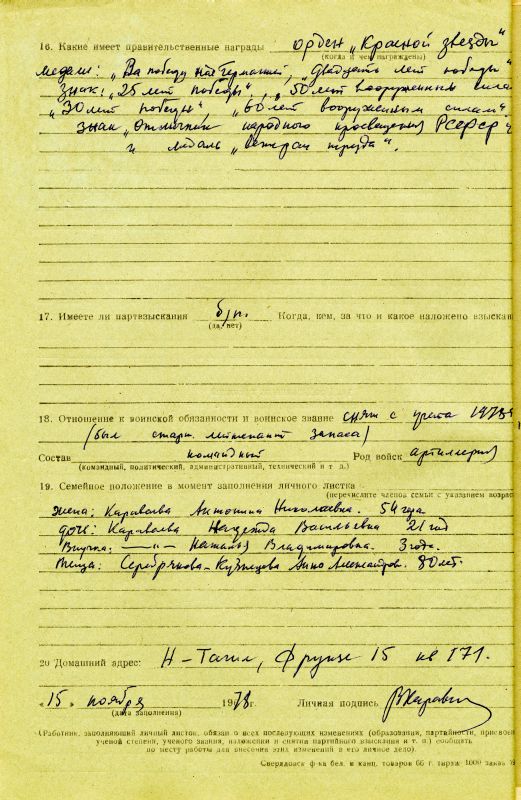 16. Какие имеет правительственные награды орден „Красной звезды"
(когда и чем награждены)
медали: „За победу над Германией", „Двадцать лет победы"
Знак: „25 лет победы", „50 лет вооруженных сил"
„30 лет победы" „60 лет вооруженным силам"
знак „Отличник народного просвещения РСФСР"
и медаль „Ветеран труда".
17. Имеете ли партвзыскания б/п. Когда, кем, за что и какое наложено взыскан
(да, нет)
18. Отношение к воинской обязанности и воинское звание снят с учета 1978
(был старш. лейтенант запаса)
Состав командный Род войск артиллерия
(командный, политический, административный, технический и т. д.)
19. Семейное положение в момент заполнения личного листка
(перечислите членов семьи с указанием возрас
жена: Караваева Антонина Николаевна. 54 года.
дочь: Караваева Надежда Васильевна 21 год
Внучка: —"— Наталья Владимировна. 3 года.
Теща: Серебрякова-Кузнецова Анна Александров. 80 лет.
20 Домашний адрес: Н-Тагил, Фрунзе 15 кв 171.
„15" ноября 1978 г. Личная подпись
(дата заполнения)
(Работник, заполняющий личный листок, обязан о всех последующих изменениях (образовании, партийности, присвоен
ученой степени, ученого звания, наложении и снятии партийного взыскания и т. п.) сообщать
по месту работы для внесения этих изменений в его личное дело).
Свердловск ф-ка бел. и канц. товаров 66 г. тираж 1000 заказ